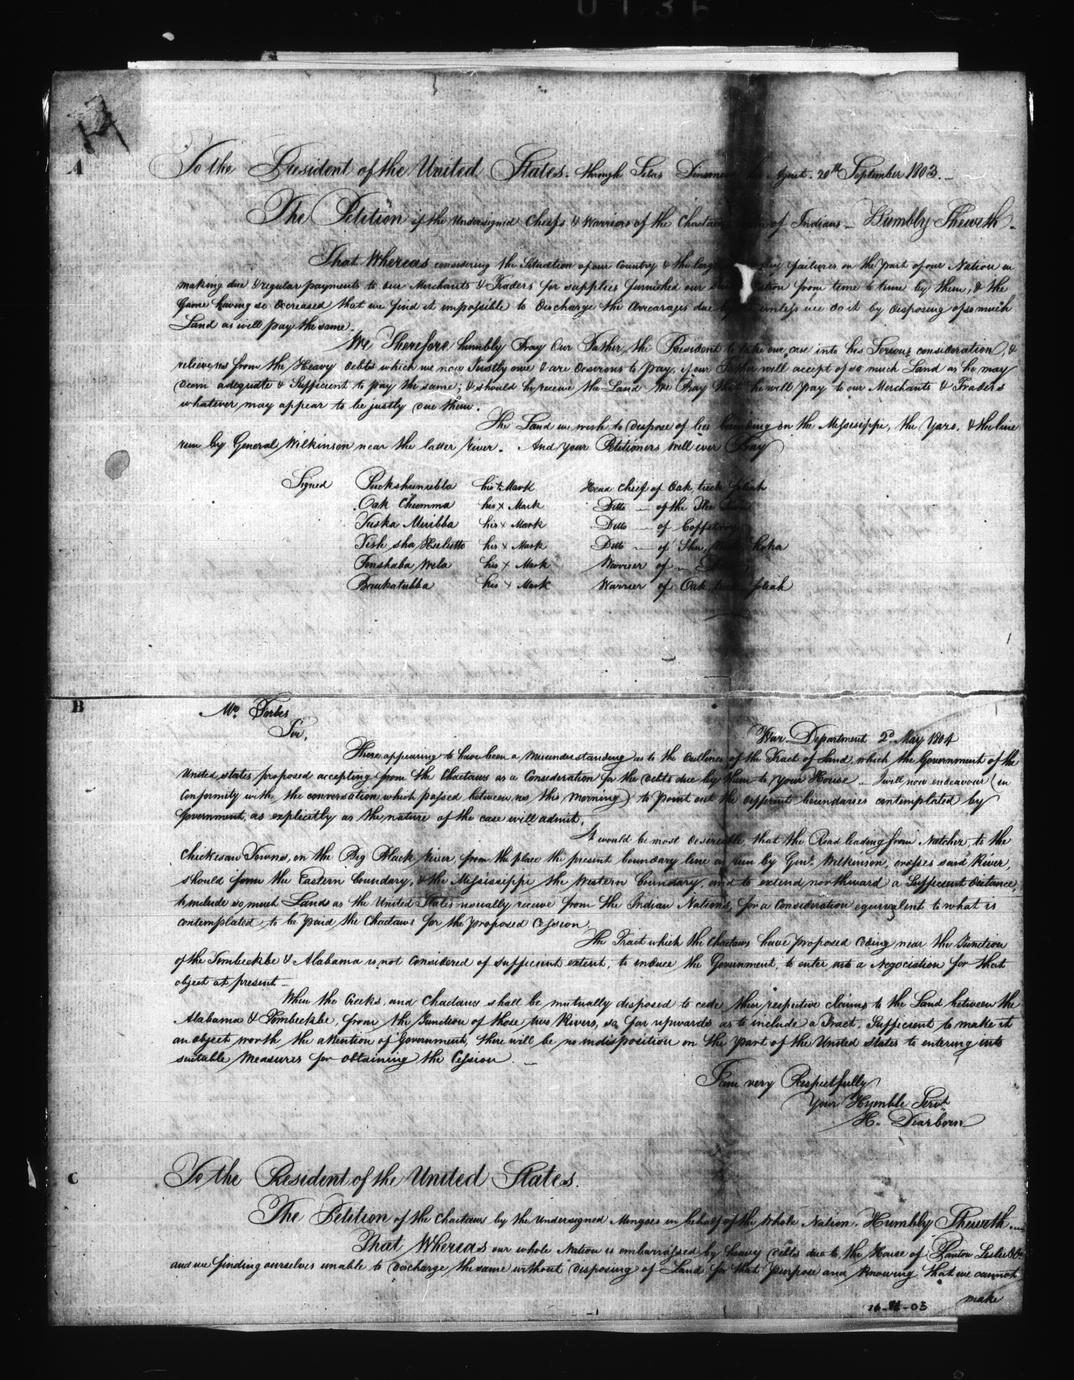 14
A
To the President of the United States. through Silas Agent. 20th September 1803.
The Petition of the Undersigned Chiefs & Warriors of the Chactaw of Indians - Humbly Sheweth.
That Whereas considering the Situation of our Country & the large failures on the part of our Nation in
making due & regular payments to our Merchants & Traders for supplies furnished our from time to time by them, & the
Game having so decreased that we find it impossible to discharge the Arrearages due unless we do it by disposing of so much
Land as will pay the same.
We Therefore humbly Pray Our Father, the President to take our case into his Serious consideration, &
relieve us from the Heavy debts which we now Justly owe & are desirous to pay, if our Father will accept of so much Land as he may
deem adequate & Sufficient to pay the same; & should he receive the Land We Pray that he will pay to our Merchants & Traders
whatever may appear to be justly due them.
The Land we wish to dispose of lies bounding on the Missisippi, the Yazo, & the line
run by General Wilkinson near the latter river. And your Petitioners will ever Pray
Signed Puckshunubla his + Mark Head Chief of Oak
Oak Chumma his x Mark Ditto - of the
Tuska Miribba his x Mark Ditto - of
his x Mark Ditto - of
his x Mark Warrier of
his x Mark Warrier of Oak
B
Mr. Forbes
Sir,
War Department 2d May 1804
There appearing to have been a misunderstanding as to the outlines of the Tract of Land, which the Government of the
United States proposed accepting from the Chactaws as a Consideration for the debts due by them to your House - I will now endeavour (in
Conformity with the conversation which passed between us this Morning) to point out the different boundaries contemplated by
Government, as explicitly as the nature of the case will admit.
It would be most desireable that the Road leading from Natchez, to the
Chickesaw Towns, on the Big Black River from the place the present boundary line as run by Genl. Wilkinson, crosses said River,
should form the Eastern boundary, & the Mississippi the Western boundary, and to extend northward a Sufficient distance,
to include so much Land as the United States usually receive from the Indian Nations, for a Consideration equivalent to what is
contemplated to be paid the Chactaws for the proposed Cession.
The Tract which the Chactaws have proposed Ceding near the Junction
of the Tombeckbe & Alabama is not considered of sufficient extent, to induce the Government, to enter into a Negociation for that
object at present -
When the Creeks and Chactaws shall be mutually disposed to cede their respective claims to the Land between the
Alabama & Tombeckbe, from the Junction of those two Rivers, so far upwards as to include a Tract, Sufficient to make it
an object worth the attention of Government, there will be no indisposition on the part of the United States to entering into
suitable measures for obtaining the Cession. -
I am very Respectfully
Your Humble Servt
H. Dearborn
C
To the President of the United States.
The Petition of the Chactaws by the Undersigned Mingoes in behalf of the Whole Nation. Humbly Sheweth.
That Whereas our whole Nation is embarrassed by heavy debts due to the House of Panton Leslie & Co
and we finding ourselves unable to discharge the same without disposing of Land for that purpose and knowing that we cannot
make